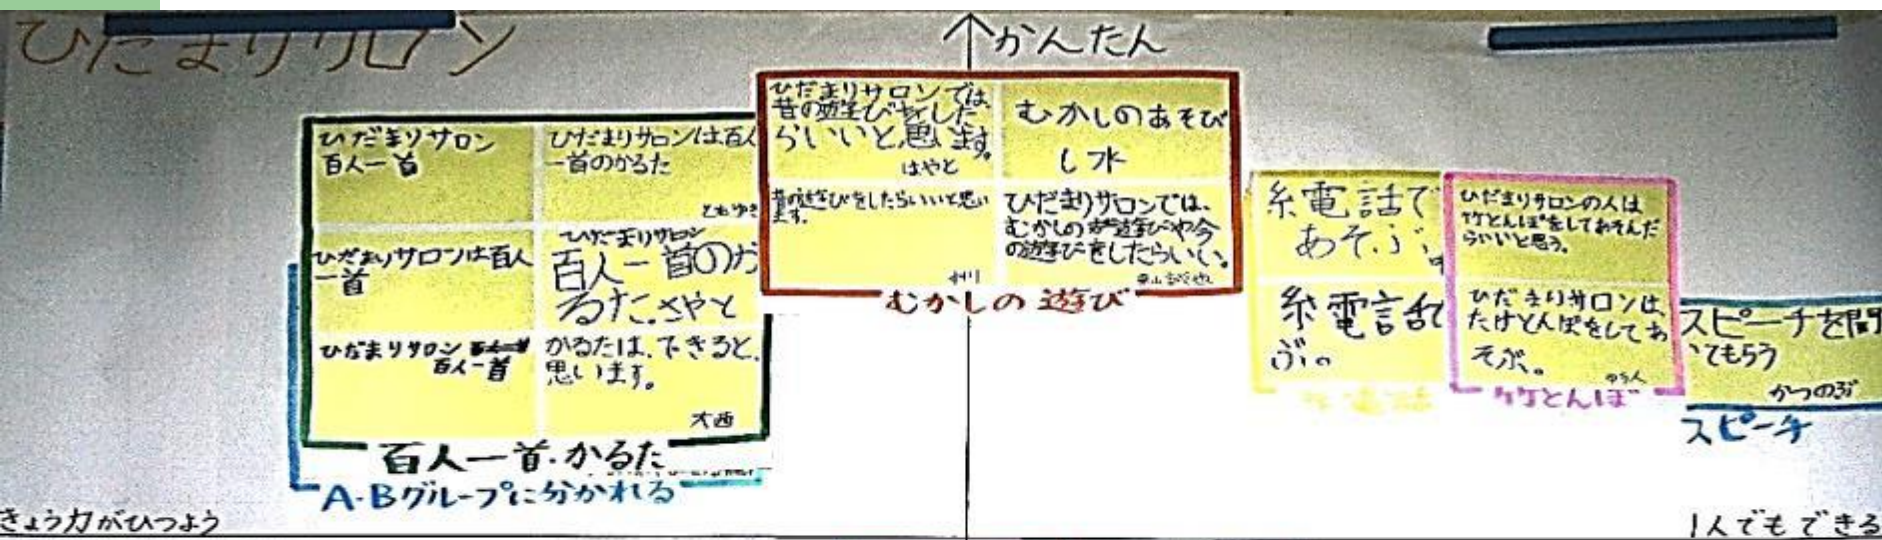 ひだまりサロン
↑かんたん
ひだまりサロン
百人一首
ひだまりサロンは百人
一首のかるた
ともゆき
ひだまりサロンは百人
一首
ひだまりサロン
百人一首のか
るた。さやと
ひだまりサロン
百人一首
かるたは、できると、
思います。
大西
百人一首・かるた
A・Bグループに分かれる
ひだまりサロンでは、
昔の遊びをした
らいいと思います。
はやと
むかしのあそび
し水
昔の遊びをしたらいいと思い
ます。
ひだまりサロンでは、
むかしの遊びや今
の遊びをしたらいい。
むかしの遊び
糸電話で
あそぶ。
糸電話
ぶ。
ひだまりサロンの人は
竹とんぼをしてあそんだ
らいいと思う。
ひだまりサロンは、
たけとんぼをしてあ
そぶ。
竹とんぼ
スピーチを聞
いてもらう
かつのぶ
スピーチ
きょう力がひつよう
1人でもできる